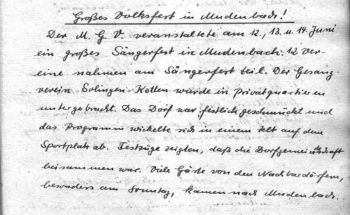 Großes Volksfest in Mudenbach!
Der M. G. V. veranstaltete am 12., 13. u. 14. Juni
ein großes Sängerfest in Mudenbach. 12 Ver-
eine nahmen am Sängerfest teil. Der Gesang-
verein Solingen-Kotten wurde in Privatquartieren
untergebracht. Das Dorf war festlich geschmückt und
das Programm wickelte sich in einem Zelt auf dem
Sportplatz ab. Festzüge zeigten, daß die Dorfgemeindschaft
beisammen war. Viele Gäste von den Nachbardörfern,
besonders am Sonntag, kamen nach Mudenbach.